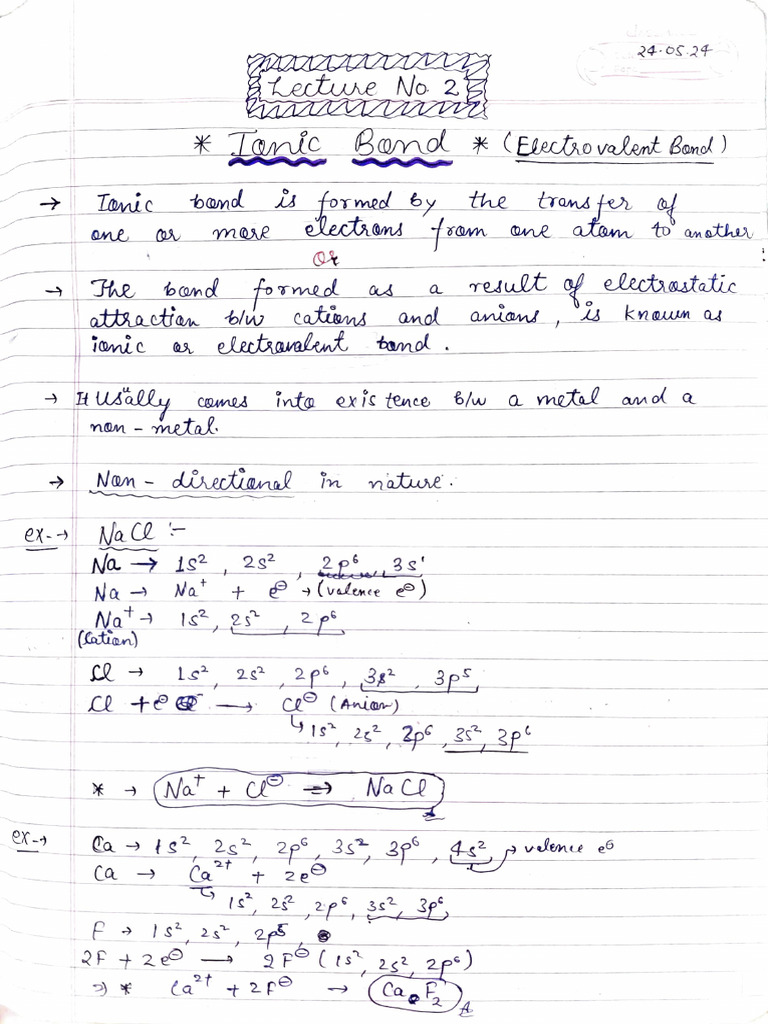 24.05.24
Lecture No 2
* Ionic Bond * (Electrovalent Bond)
→ Ionic bond is formed by the transfer of
one or more electrons from one atom to another
Or
→ The bond formed as a result of electrostatic
attraction b/w cations and anions, is known as
ionic or electrovalent bond.
→ It usually comes into existence b/w a metal and a
non-metal.
→ Non-directional in nature.
ex-→ NaCl :-
Na → 1s², 2s², 2p⁶, 3s¹
Na → Na⁺ + e⊖ → (valence e⊖)
Na⁺ → 1s², 2s², 2p⁶
(Cation)
Cl → 1s², 2s², 2p⁶, 3s², 3p⁵
Cl + e⊖ ⟶ Cl⊖ (Anion)
↳ 1s², 2s², 2p⁶, 3s², 3p⁶
* → Na⁺ + Cl⊖ ⇒ NaCl
ex-→ Ca → 1s², 2s², 2p⁶, 3s², 3p⁶, 4s² → valence e⊖
Ca → Ca²⁺ + 2e⊖
↳ 1s², 2s², 2p⁶, 3s², 3p⁶
F → 1s², 2s², 2p⁵
2F + 2e⊖ ⟶ 2F⊖ (1s², 2s², 2p⁶)
⇒ * Ca²⁺ + 2F⊖ → CaF₂